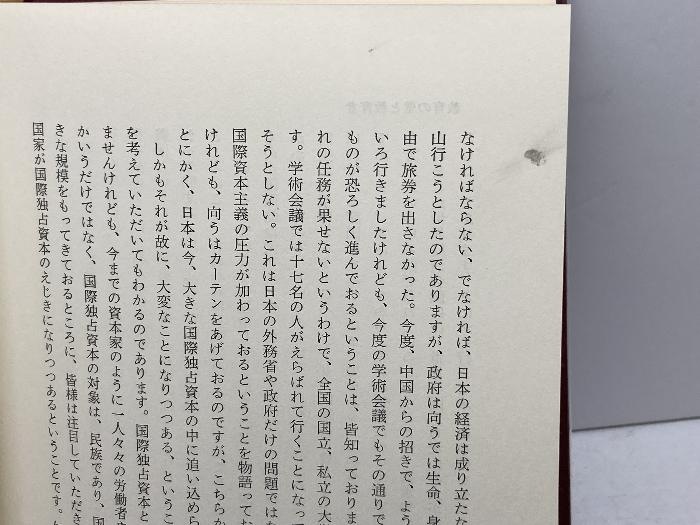 なければならない、でなければ、日本の経済は成り立たな
山行こうとしたのでありますが、政府は向うでは生命、身
由で旅券を出さなかった。今度、中国からの招きで、よう
いろ行きましたけれども、今度の学術会議でもその通りで
ものが恐ろしく進んでおるということは、皆知っておりま
れの任務が果せないというわけで、全国の国立、私立の大
す。学術会議では十七名の人がえらばれて行くことになっ
そうとしない。これは日本の外務省や政府だけの問題ではな
国際資本主義の圧力が加わっておるということを物語ってお
けれども、向うはカーテンをあげておるのですが、こちらか
とにかく、日本は今、大きな国際独占資本の中に追い込めら
しかもそれが故に、大変なことになりつつある、というこ
を考えていただいてもわかるのであります。国際独占資本と
ませんけれども、今までの資本家のように一人々々の労働者
かいうだけではなく、国際独占資本の対象は、民族であり、国
きな規模をもってきておるところに、皆様は注目していただき
国家が国際独占資本のえじきになりつつあるということです。